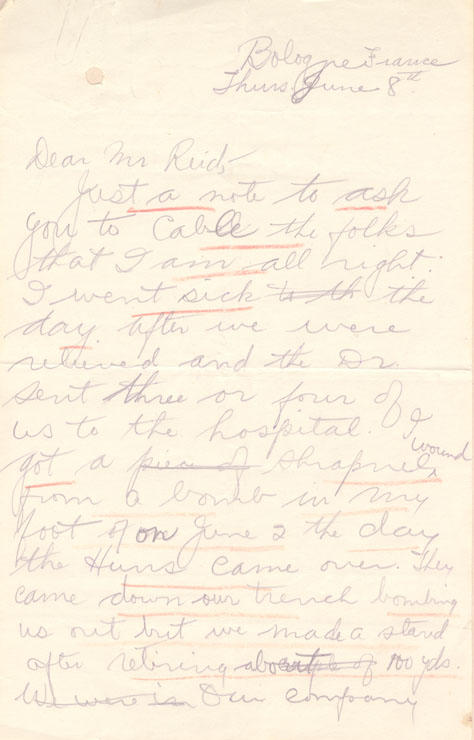 Bologne France
Thurs. June 8th.
Dear Mr Reid,-
Just a note to ask
you to cable the folks
that I am all right.
I went sick to th the
day after we were
relieved and the Dr.
sent three or four of
us to the hospital. I
got a piece of shrapnel wound
from a bomb in my
foot of on June 2 the day
the Huns came over. They
came down our trench bombing
us out but we made a stand
after retiring about 100 yds.
We were in Our company